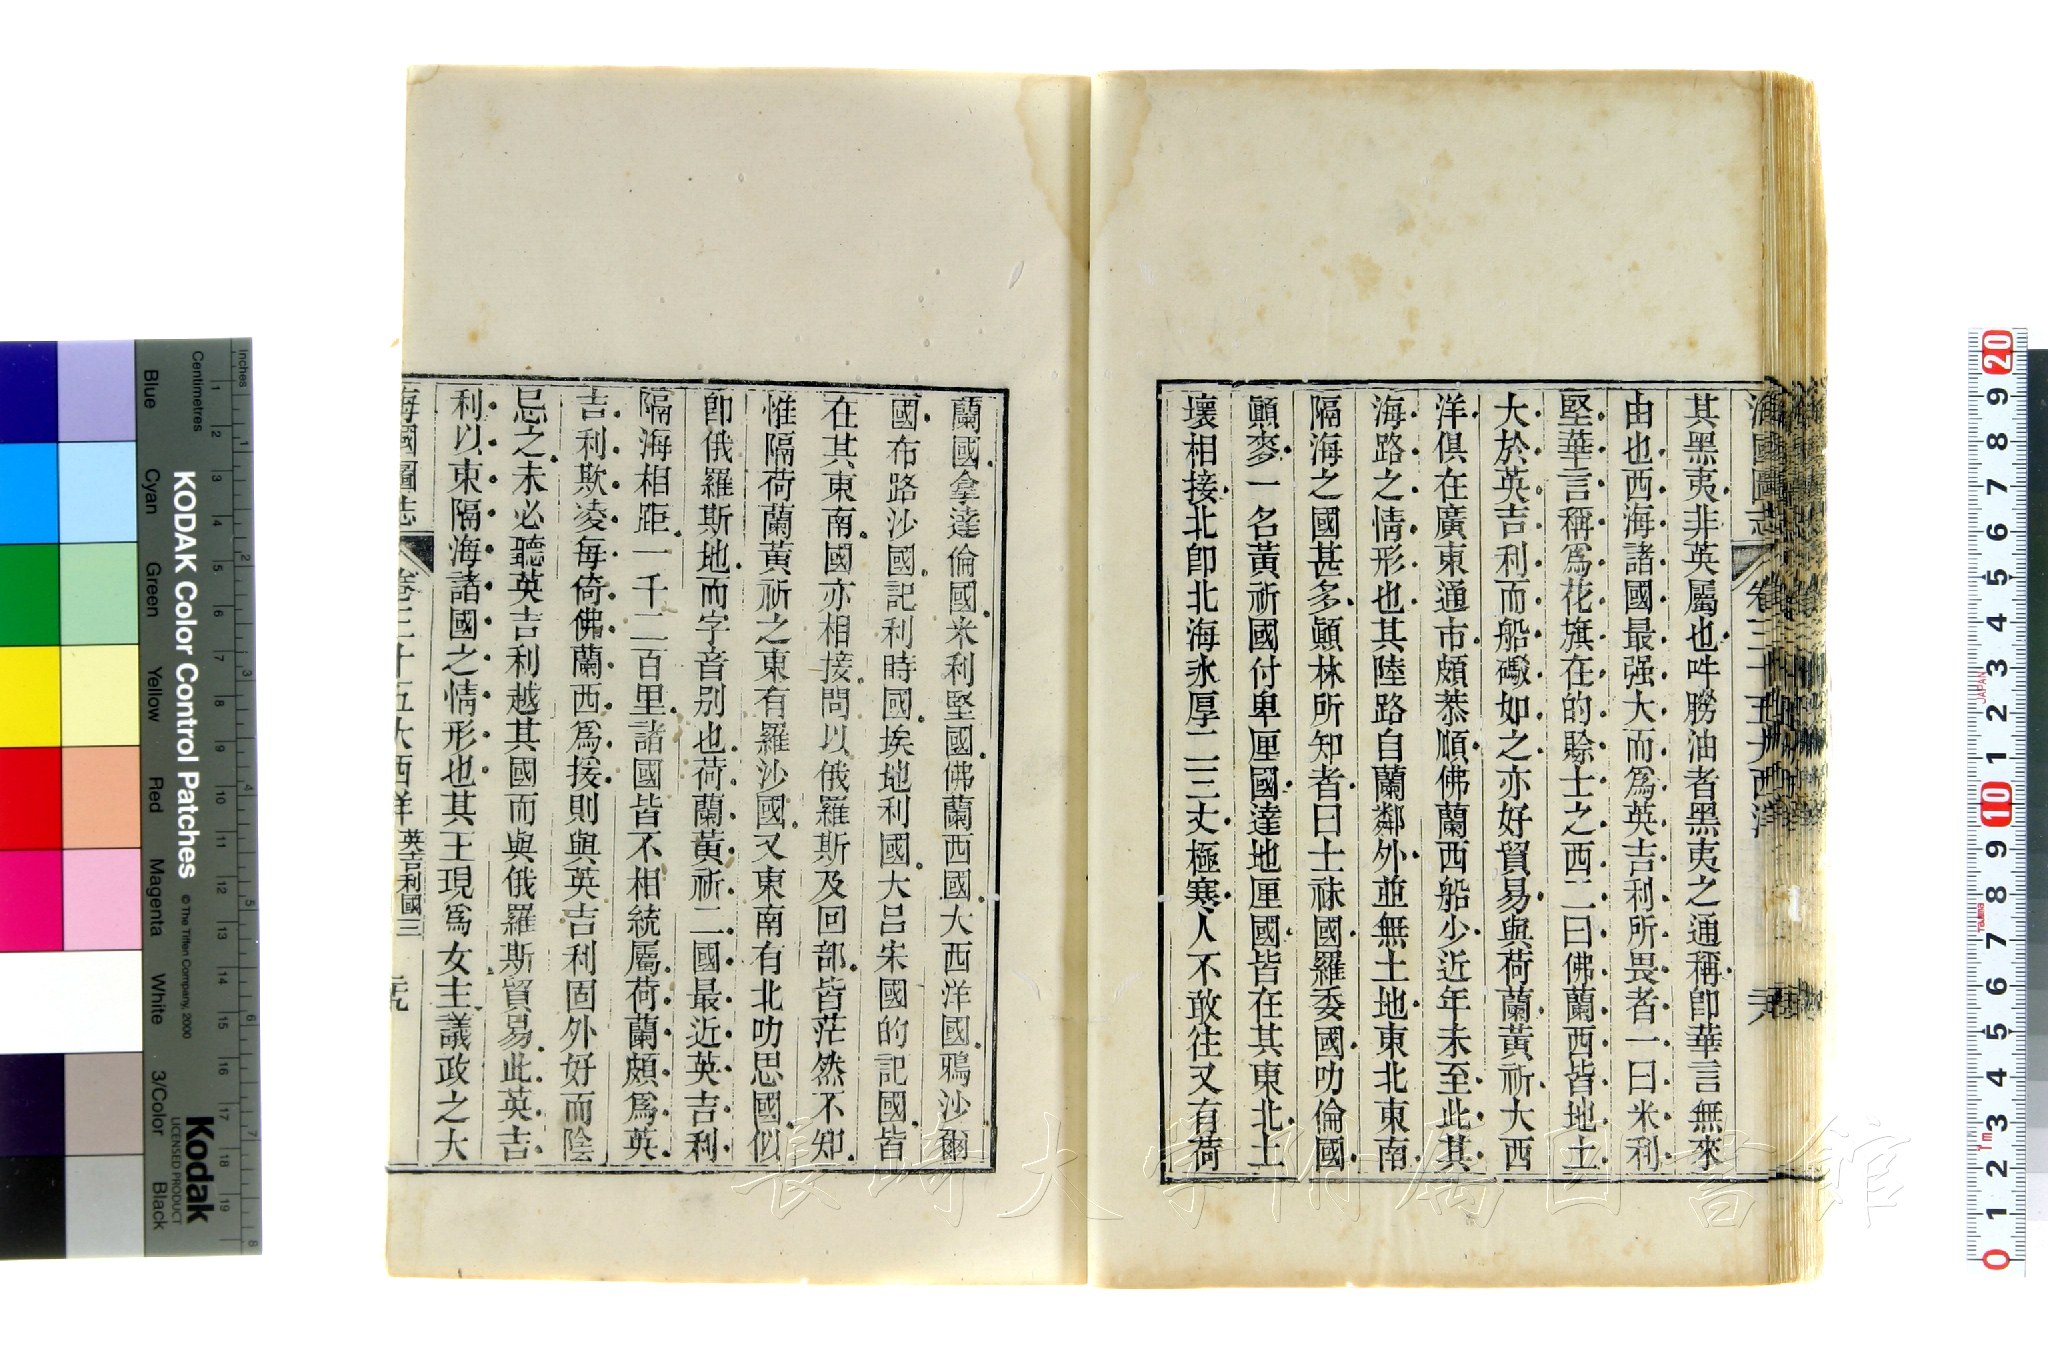 海國圖志 卷三十五大西洋
其黑夷非英屬也吽勝油者黑夷之通稱卽華言無來
由也西海諸國最强大而爲英吉利所畏者一曰米利
堅華言稱爲花旗在的賒士之西二曰佛蘭西皆地土
大於英吉利而船礮如之亦好貿易與荷蘭黃祈大西
洋俱在廣東通市頗恭順佛蘭西船少近年未至此其
海路之情形也其陸路自蘭鄰外並無土地東北東南
隔海之國甚多顚林所知者曰士祿國羅委國叻倫國
顚麥一名黃祈國付卑厘國達地厘國皆在其東北土
壤相接北卽北海氷厚二三丈極寒人不敢往又有荷
蘭國拿達倫國米利堅國佛蘭西國大西洋國鴉沙爾
國布路沙國記利時國埃地利國大呂宋國的記國皆
在其東南國亦相接問以俄羅斯及回部皆茫然不知
惟隔荷蘭黃祈之東有羅沙國又東南有北叻思國似
卽俄羅斯地而字音別也荷蘭黃祈二國最近英吉利
隔海相距一千二百里諸國皆不相統屬荷蘭頗爲英
吉利欺凌每倚佛蘭西爲援則與英吉利固外好而陰
忌之未必聽英吉利越其國而與俄羅斯貿易此英吉
利以東隔海諸國之情形也其王現爲女主議政之大
海國圖志 卷三十五大西洋 英吉利國三
KODAK Color Control Patches © The Tiffen Company, 2000
Kodak
LICENSED PRODUCT
Inches
Centimetres
Blue Cyan Green Yellow Red Magenta White 3/Color Black
1 2 3 4 5 6 7 8 9 10 11 12 13 14 15 16 17 18 19
1 2 3 4 5 6 7 8
20 9 8 7 6 5 4 3 2 1 10 9 8 7 6 5 4 3 2 1 0
JAPAN
長崎大学附属図書館